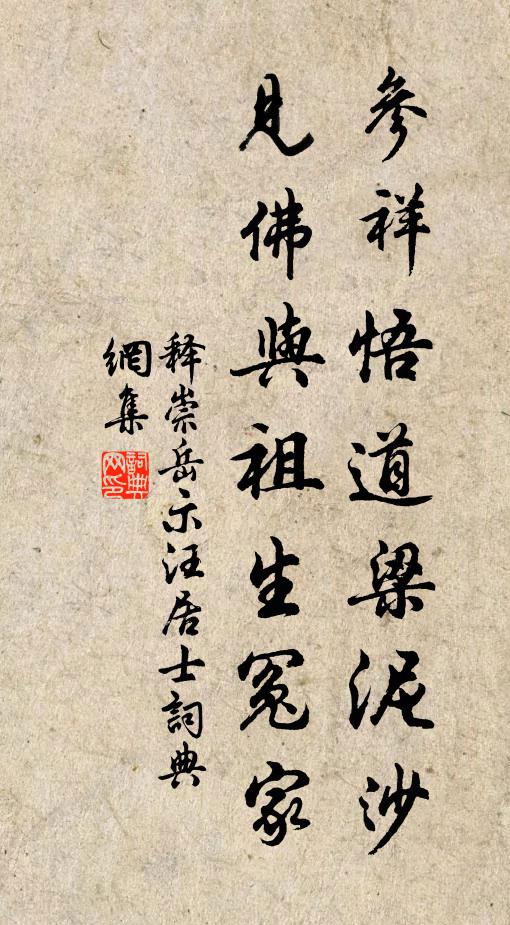 參祥悟道梁泥沙
見佛與祖生冤家
释崇岳示汪居士詞典
網集
詞典網印